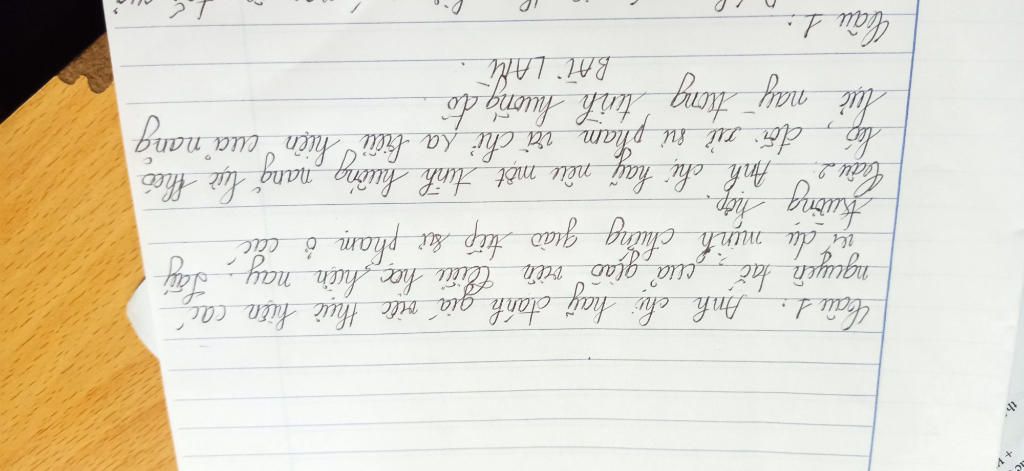 Câu 1: Anh chị hãy đánh giá việc thực hiện các
nguyên tắc của giáo viên tiểu học hiện nay. Lấy
ví dụ minh chứng giao tiếp sư phạm ở các
trường hợp.
Câu 2. Anh chị hãy nêu một tình huống năng lực theo
đối xử sư phạm và chỉ ra biểu hiện của năng
lực này trong tình huống đó.
BÀI LÀM
Câu 1: